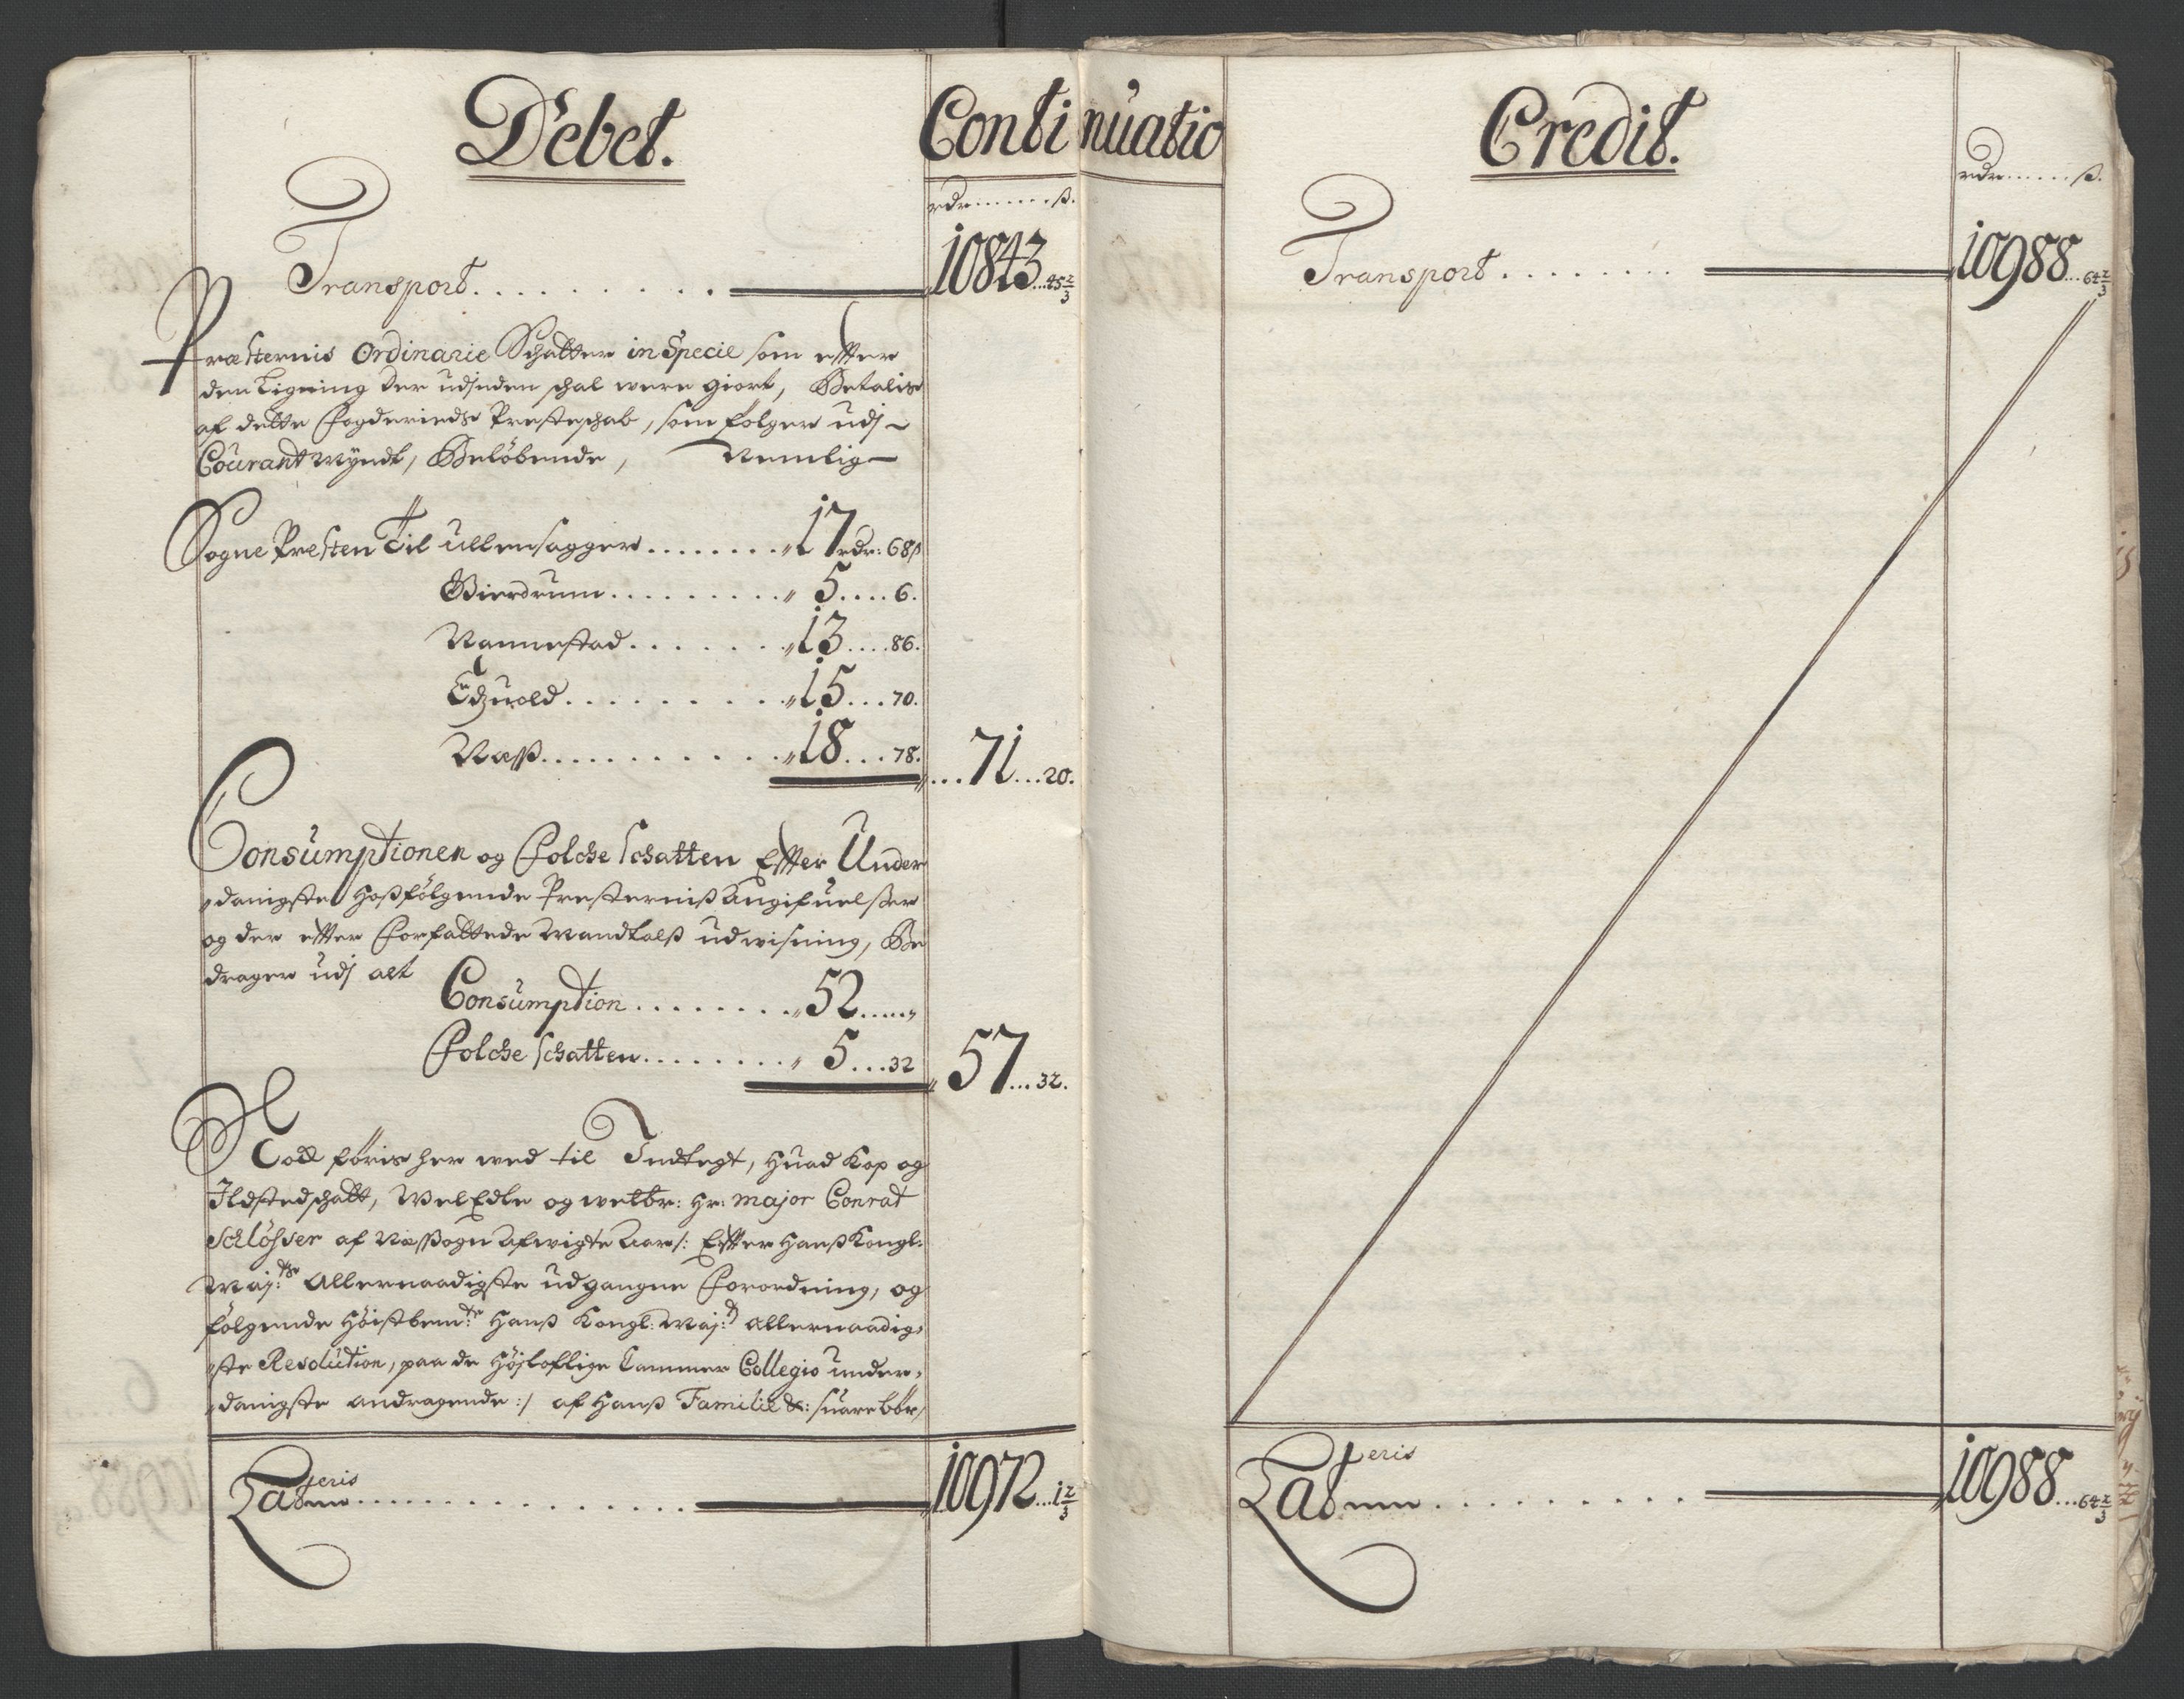 Debet.
Continuatio
rdr......ß.
Transport......... 10843...45 2/3
Præsternis Ordinarie Schatter in Specie som effter
den Ligning der udjnden schal were giort, Betalis
af dette Fogderieds Presteschab, som følger udj
Courant Myndt, Beløbende, Nemlig
Sogne Presten Til Ullensagger........ 17 rdr: 68 ß
Gierdrum......... 5....6.
Nannestad....... 13....86.
Edzuold......... 15...70.
Næss........... 18...78. ...71...20.
Consumptionen og Folche Schatten Effter Under
danigste hoßfølgende Presterniß Angifuelßer
og der effter forfattede Mandtalß udwisning, Be
drager udj alt
Consumption........ 52......
Folche Schatten........ 5...32 57...32.
Noch føris her wed til Indtegt, huad Kop og
Ildstedschatt, WelEdle og welbr: Hr: Major Conrat
Schlösser af Næßsogn Afwigte Aar /: Effter Hanß Kongl:
Maj:ts Allernaadigste udgangne Forordning, og
følgende Høistbem:te Hanß Kongl: Maj:ts allernaadig-
ste Resolution, paa de Højloflige Cammer Collegio under-
danigste andragende :/ af Hanß Familie &: suare bør,
Lateris
Lat mm................ 10972...1 2/3
Credit.
rdr......ß.
Transport........ 10988...64 2/3
Lateris
Lat mm......... 10988...64 2/3